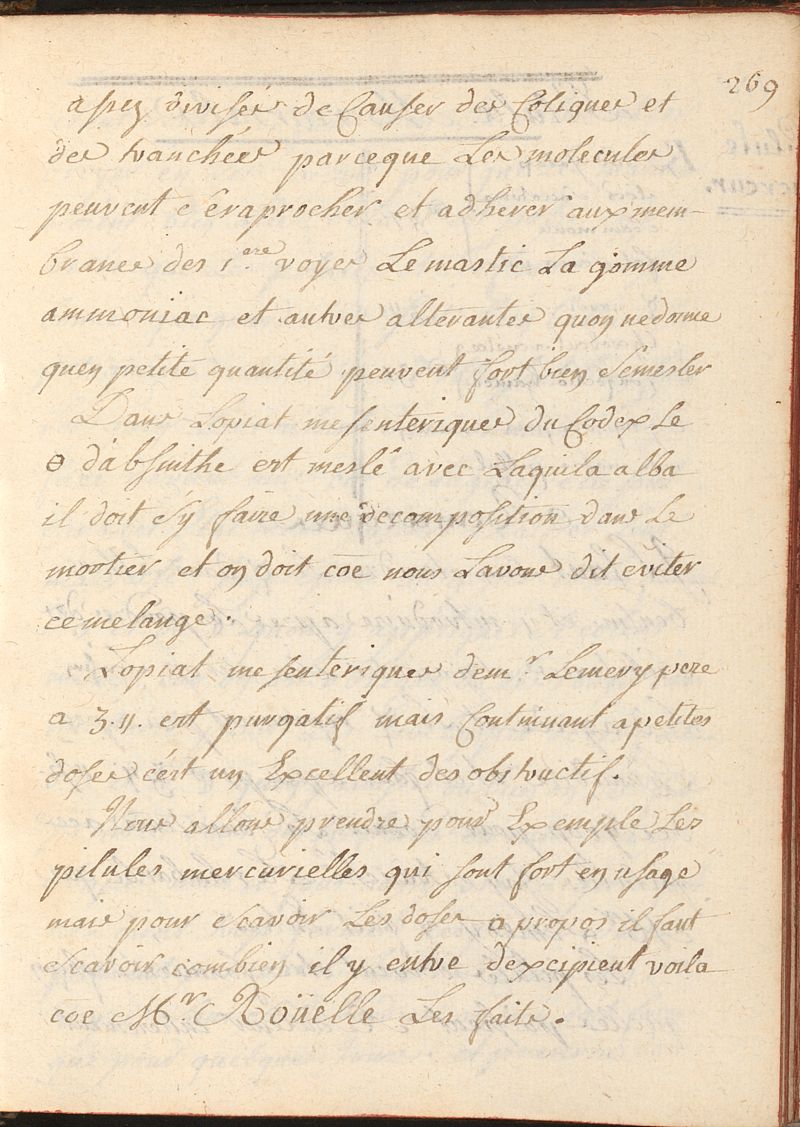 269
assez divisés de Causer des Coliques et
des tranchées parceque Les molecules
peuvent s'éraprocher et adherer aux mem-
branes des 1.ere voyes Le mastic La gomme
ammoniac et autres alterantes quon ne donne
quen petite quantité peuvent fort bien Semesler
Dans Lopiat mesenterique du Codex Le
Θ d'absinthe est meslé avec Laquila alba
il doit s'y faire une decomposition dans Le
mortier et on doit cōe nous Lavons dit eviter
ce melange.
Lopiat mesenterique dem.r Lemery pere
a 3.11. est purgatif mais Continuant a petites
doses c'est un Excellent desobstructif.
Nous allons prendre pour Exemple Les
pilules mercurielles qui sont fort en usage
mais pour scavoir Les doser a propos il faut
scavoir combien il y entre dexcipient voila
cōe Mr. Roüelle Les faits.